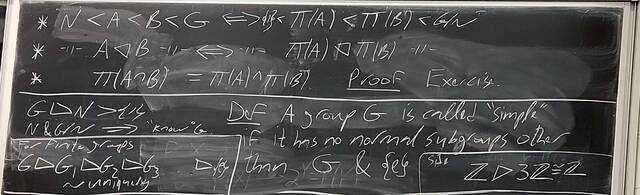 * N < A < B < G ⟺ {e} < π(A) < π(B) < G/N
* -11- A ◁ B -11- ⟺ -11- π(A) ◁ π(B) -11-
* π(A∩B) = π(A)∩π(B). Proof Exercise.
G ▷ N > {e}
N & G/N ⟹ "know" G
For finite groups
G ▷ G₁ ▷ G₂ ▷ G₃ ▷ {e}
~ uniquely
Def A group G is called "simple"
if it has no normal subgroups other
than G & {e}
Side
ℤ ▷ 3ℤ ≅ ℤ